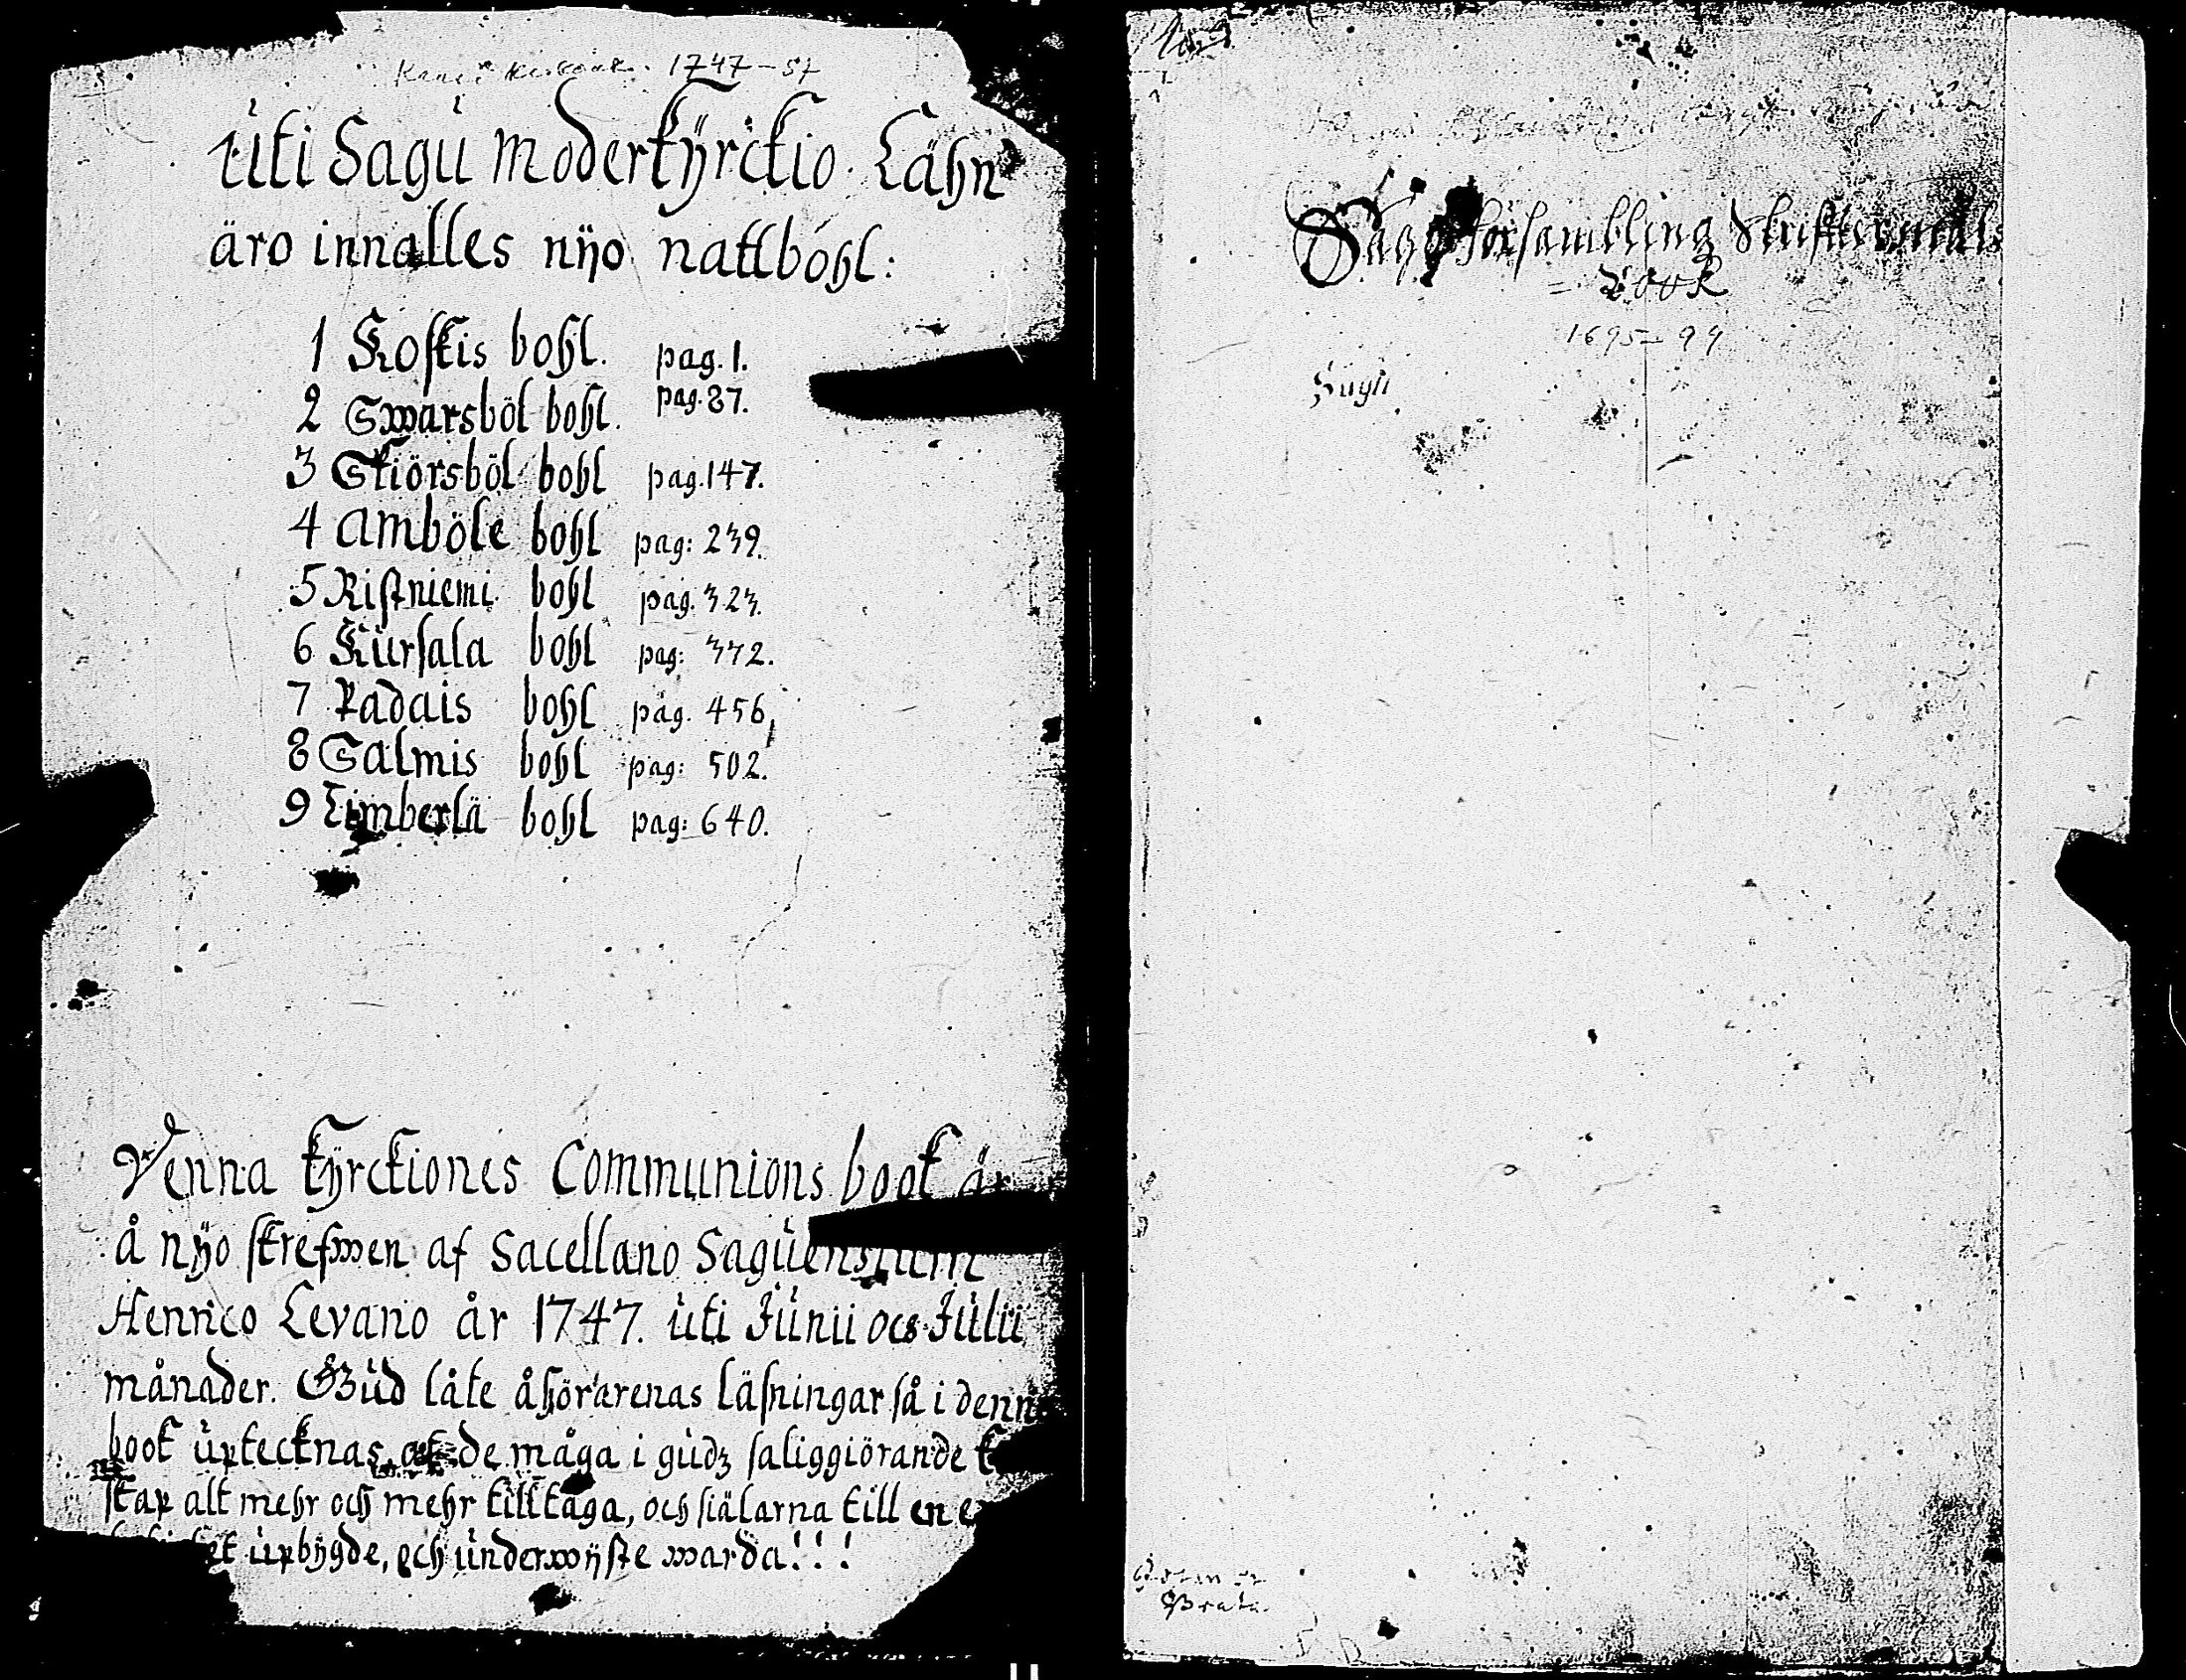 1747-57
uti Sagu moderkyrckio Lähn
äro innalles nyo nattbohl:
1 Koskis bohl. pag. 1.
2 Swarsböl bohl. pag. 87.
3 Skiörsböl bohl pag. 147.
4 Amböle bohl pag: 239.
5 Ristniemi bohl pag. 323.
6 Kursala bohl pag: 372.
7 Padais bohl pag. 456,
8 Salmis bohl pag: 502.
9 Timberlä bohl pag: 640.
Denna kyrckiones Communions book är
å nyo skrefwen af Sacellano Saguensium
Henrico Levano år 1747. uti Junii och Julii
månader. Gud låte åhörarenas läsningar så i denn
book uptecknas, at de måga i gudz saliggiörande k
skap alt mehr och mehr tilltaga, och siälarna till en e
et upbygde, och underwyste warda!!!
Sagu församblings Skriftermåls
= Book
1695-99
Sagu